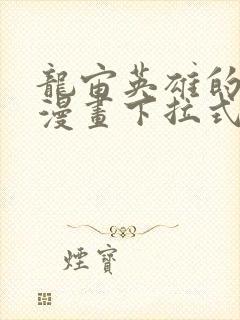 龍宙英雄的
漫畫下拉式
煙寶